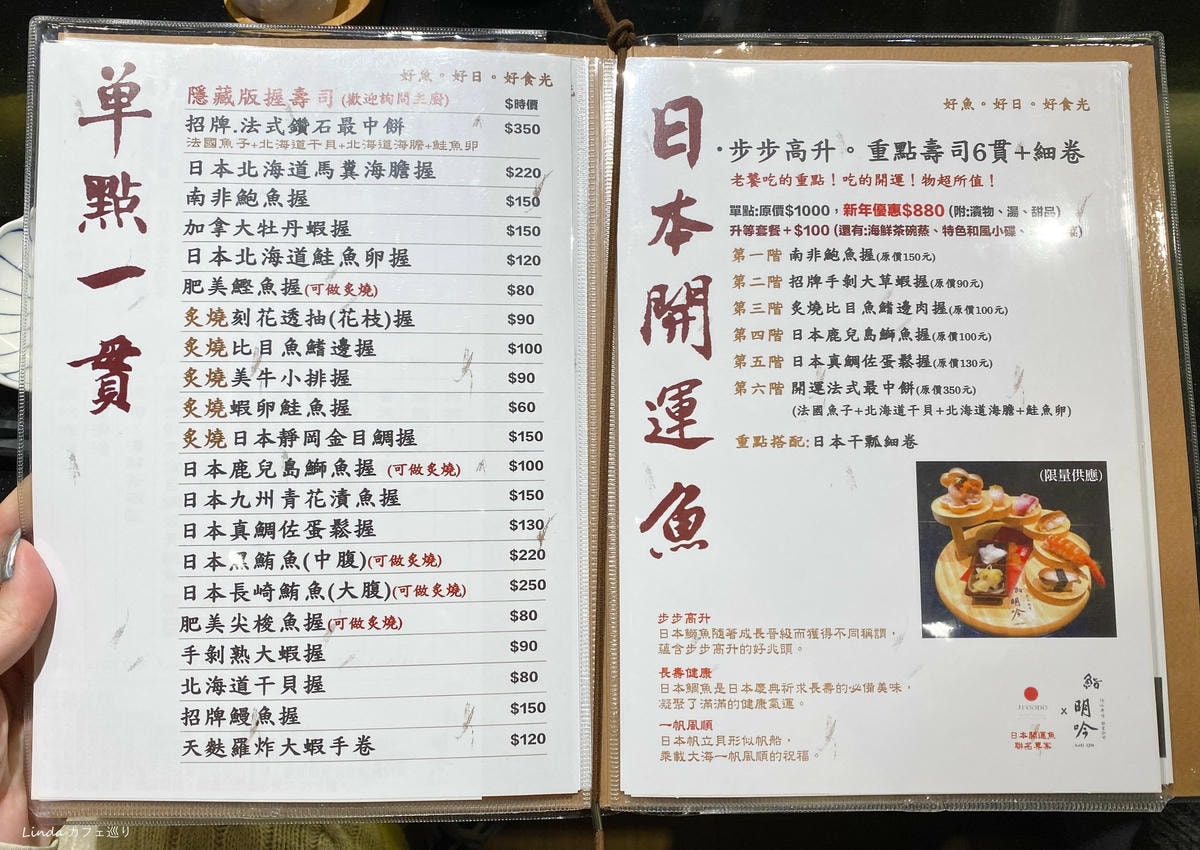 单點一貫
好魚。好日。好食光
隱藏版握壽司(歡迎詢問主廚) $時價
招牌.法式鑽石最中餅 $350
法國魚子+北海道干貝+北海道海膽+鮭魚卵
日本北海道馬糞海膽握 $220
南非鮑魚握 $150
加拿大牡丹蝦握 $150
日本北海道鮭魚卵握 $120
肥美鰹魚握(可做炙燒) $80
炙燒刻花透抽(花枝)握 $90
炙燒比目魚鰭邊握 $100
炙燒美牛小排握 $90
炙燒蝦卵鮭魚握 $60
炙燒日本靜岡金目鯛握 $150
日本鹿兒島鰤魚握 (可做炙燒) $100
日本九州青花漬魚握 $150
日本真鯛佐蛋鬆握 $130
日本黑鮪魚(中腹)(可做炙燒) $220
日本長崎鮪魚(大腹)(可做炙燒) $250
肥美尖梭魚握(可做炙燒) $80
手剝熟大蝦握 $90
北海道干貝握 $80
招牌鰻魚握 $150
天麩羅炸大蝦手卷 $120
日本開運魚
好魚。好日。好食光
·步步高升。重點壽司6貫+細卷
老饕吃的重點!吃的開運!物超所值!
單點:原價$1000,新年優惠$880 (附:漬物、湯、甜品)
升等套餐+$100 (還有:海鮮茶碗蒸、特色和風小碟、
第一階 南非鮑魚握(原價150元)
第二階 招牌手剝大草蝦握(原價90元)
第三階 炙燒比目魚鰭邊肉握(原價100元)
第四階 日本鹿兒島鰤魚握(原價100元)
第五階 日本真鯛佐蛋鬆握(原價130元)
第六階 開運法式最中餅(原價350元)
(法國魚子+北海道干貝+北海道海膽+鮭魚卵)
重點搭配:日本干瓢細卷
(限量供應)
明吟
步步高升
日本鰤魚隨著成長晉級而獲得不同稱謂,
蘊含步步高升的好兆頭。
長壽健康
日本鯛魚是日本慶典祈求長壽的必備美味,
凝聚了滿滿的健康氣運。
一帆風順
日本帆立貝形似帆船,
乘載大海一帆風順的祝福。
JFOODO
日本開運魚
聯名專家
x
鮨明吟
Linda カフェ巡り